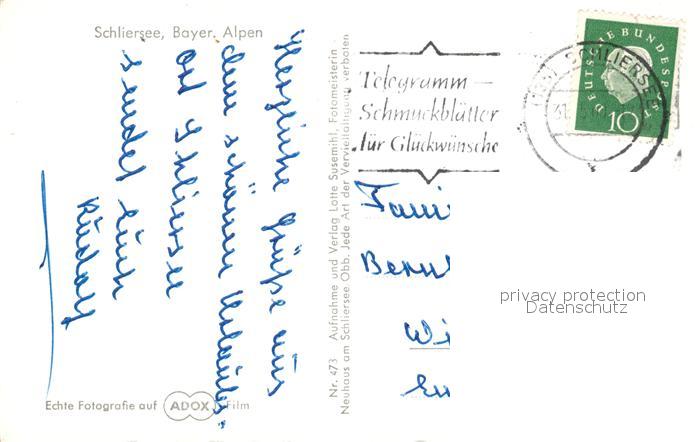 Schliersee, Bayer. Alpen
Herzliche Grüße aus
dem schönen Urlaubs-
ort Schliersee
sendet Euch
Rudolf
Echte Fotografie auf ADOX Film
Nr. 473 Aufnahme und Verlag Lotte Susemihl, Fotomeisterin
Neuhaus am Schliersee Obb. Jede Art der Vervielfältigung verboten
Telegramm-
Schmuckblätter
für Glückwünsche
SCHLIERSEE
DEUTSCHE BUNDESPOST
10
Fami
Bern
Wi
privacy protection
Datenschutz